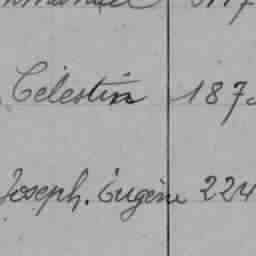 Célestin 187
Joseph. Eugène 224